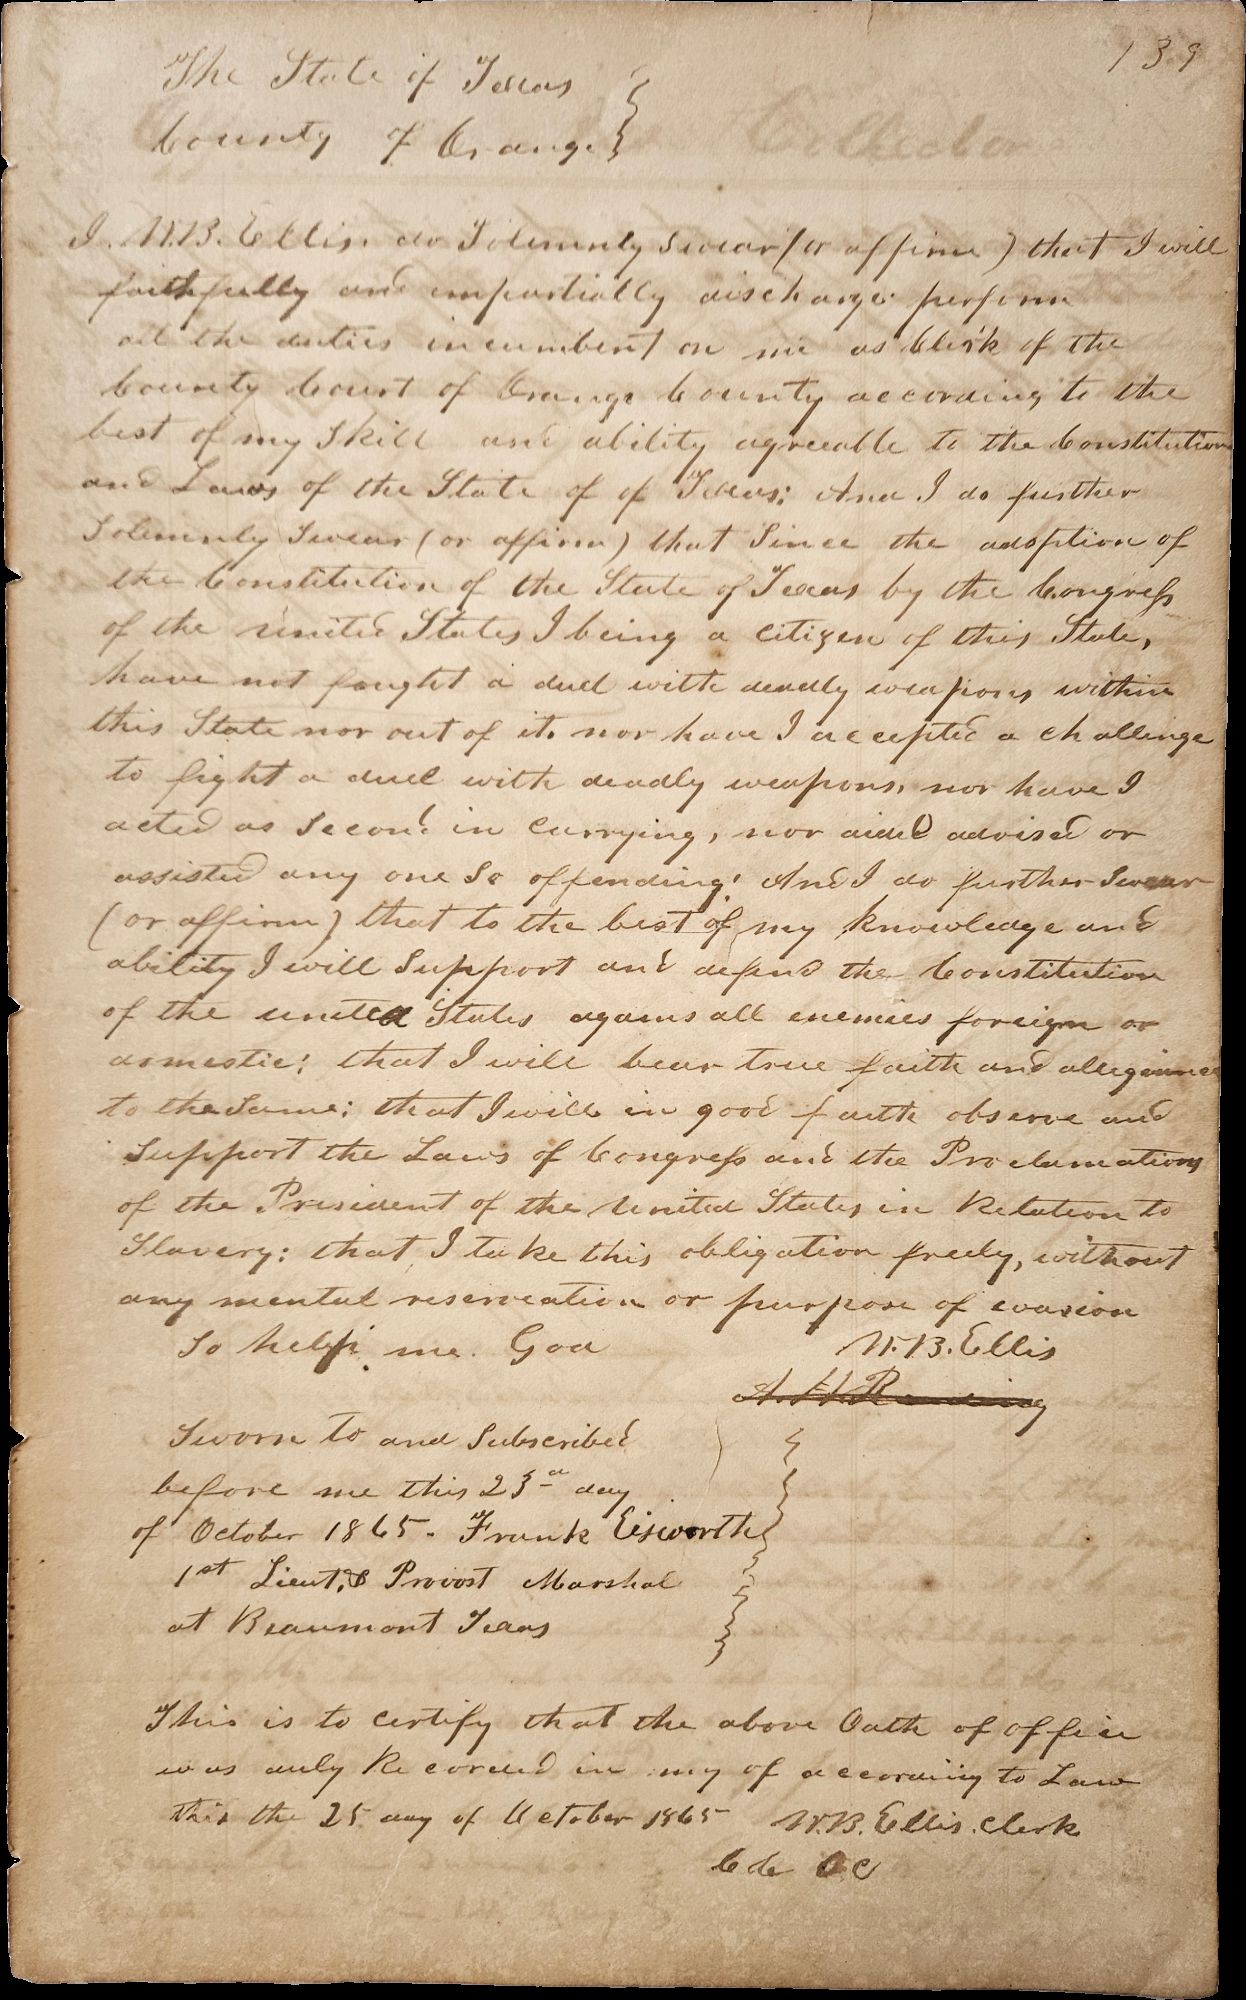 139
The State of Texas
County of Orange
I. W.B. Ellis. do Solemnly Swear (or affirm) that I will
faithfully and impartially discharge perform
all the duties incumbent on me as Clerk of the
County Court of Orange County according to the
best of my Skill and ability agreeable to the Constitution
and Laws of the State of of Texas: And I do further
Solemnly Swear (or affirm) that Since the adoption of
the Constitution of the State of Texas by the Congress
of the united States I being a citizen of this State,
have not fought a duel with deadly weapons within
this State nor out of it. nor have I accepted a challenge
to fight a duel with deadly weapons, nor have I
acted as Second in Carrying, nor aided advised or
assisted any one So offending: And I do further Swear
(or affirm) that to the best of my knowledge and
ability I will Support and defend the Constitution
of the united States agains all enemies foreign or
domestic; that I will bear true faith and allegiance
to the Same; that I will in good faith observe and
Support the Laws of Congress and the Proclamations
of the President of the United States in Relation to
Slavery: that I take this obligation freely, without
any mental reserveation or purpose of evasion
So help me. God W.B. Ellis
Sworn to and Subscribed
before me this 23d day
of October 1865. Frank Eisworth
1st Lieut, & Provost Marshal
at Beaumont Texas
This is to certify that the above Oath of office
was duly Recorded in my of according to Law
this the 25 day of October 1865 W.B. Ellis. Clerk
OC